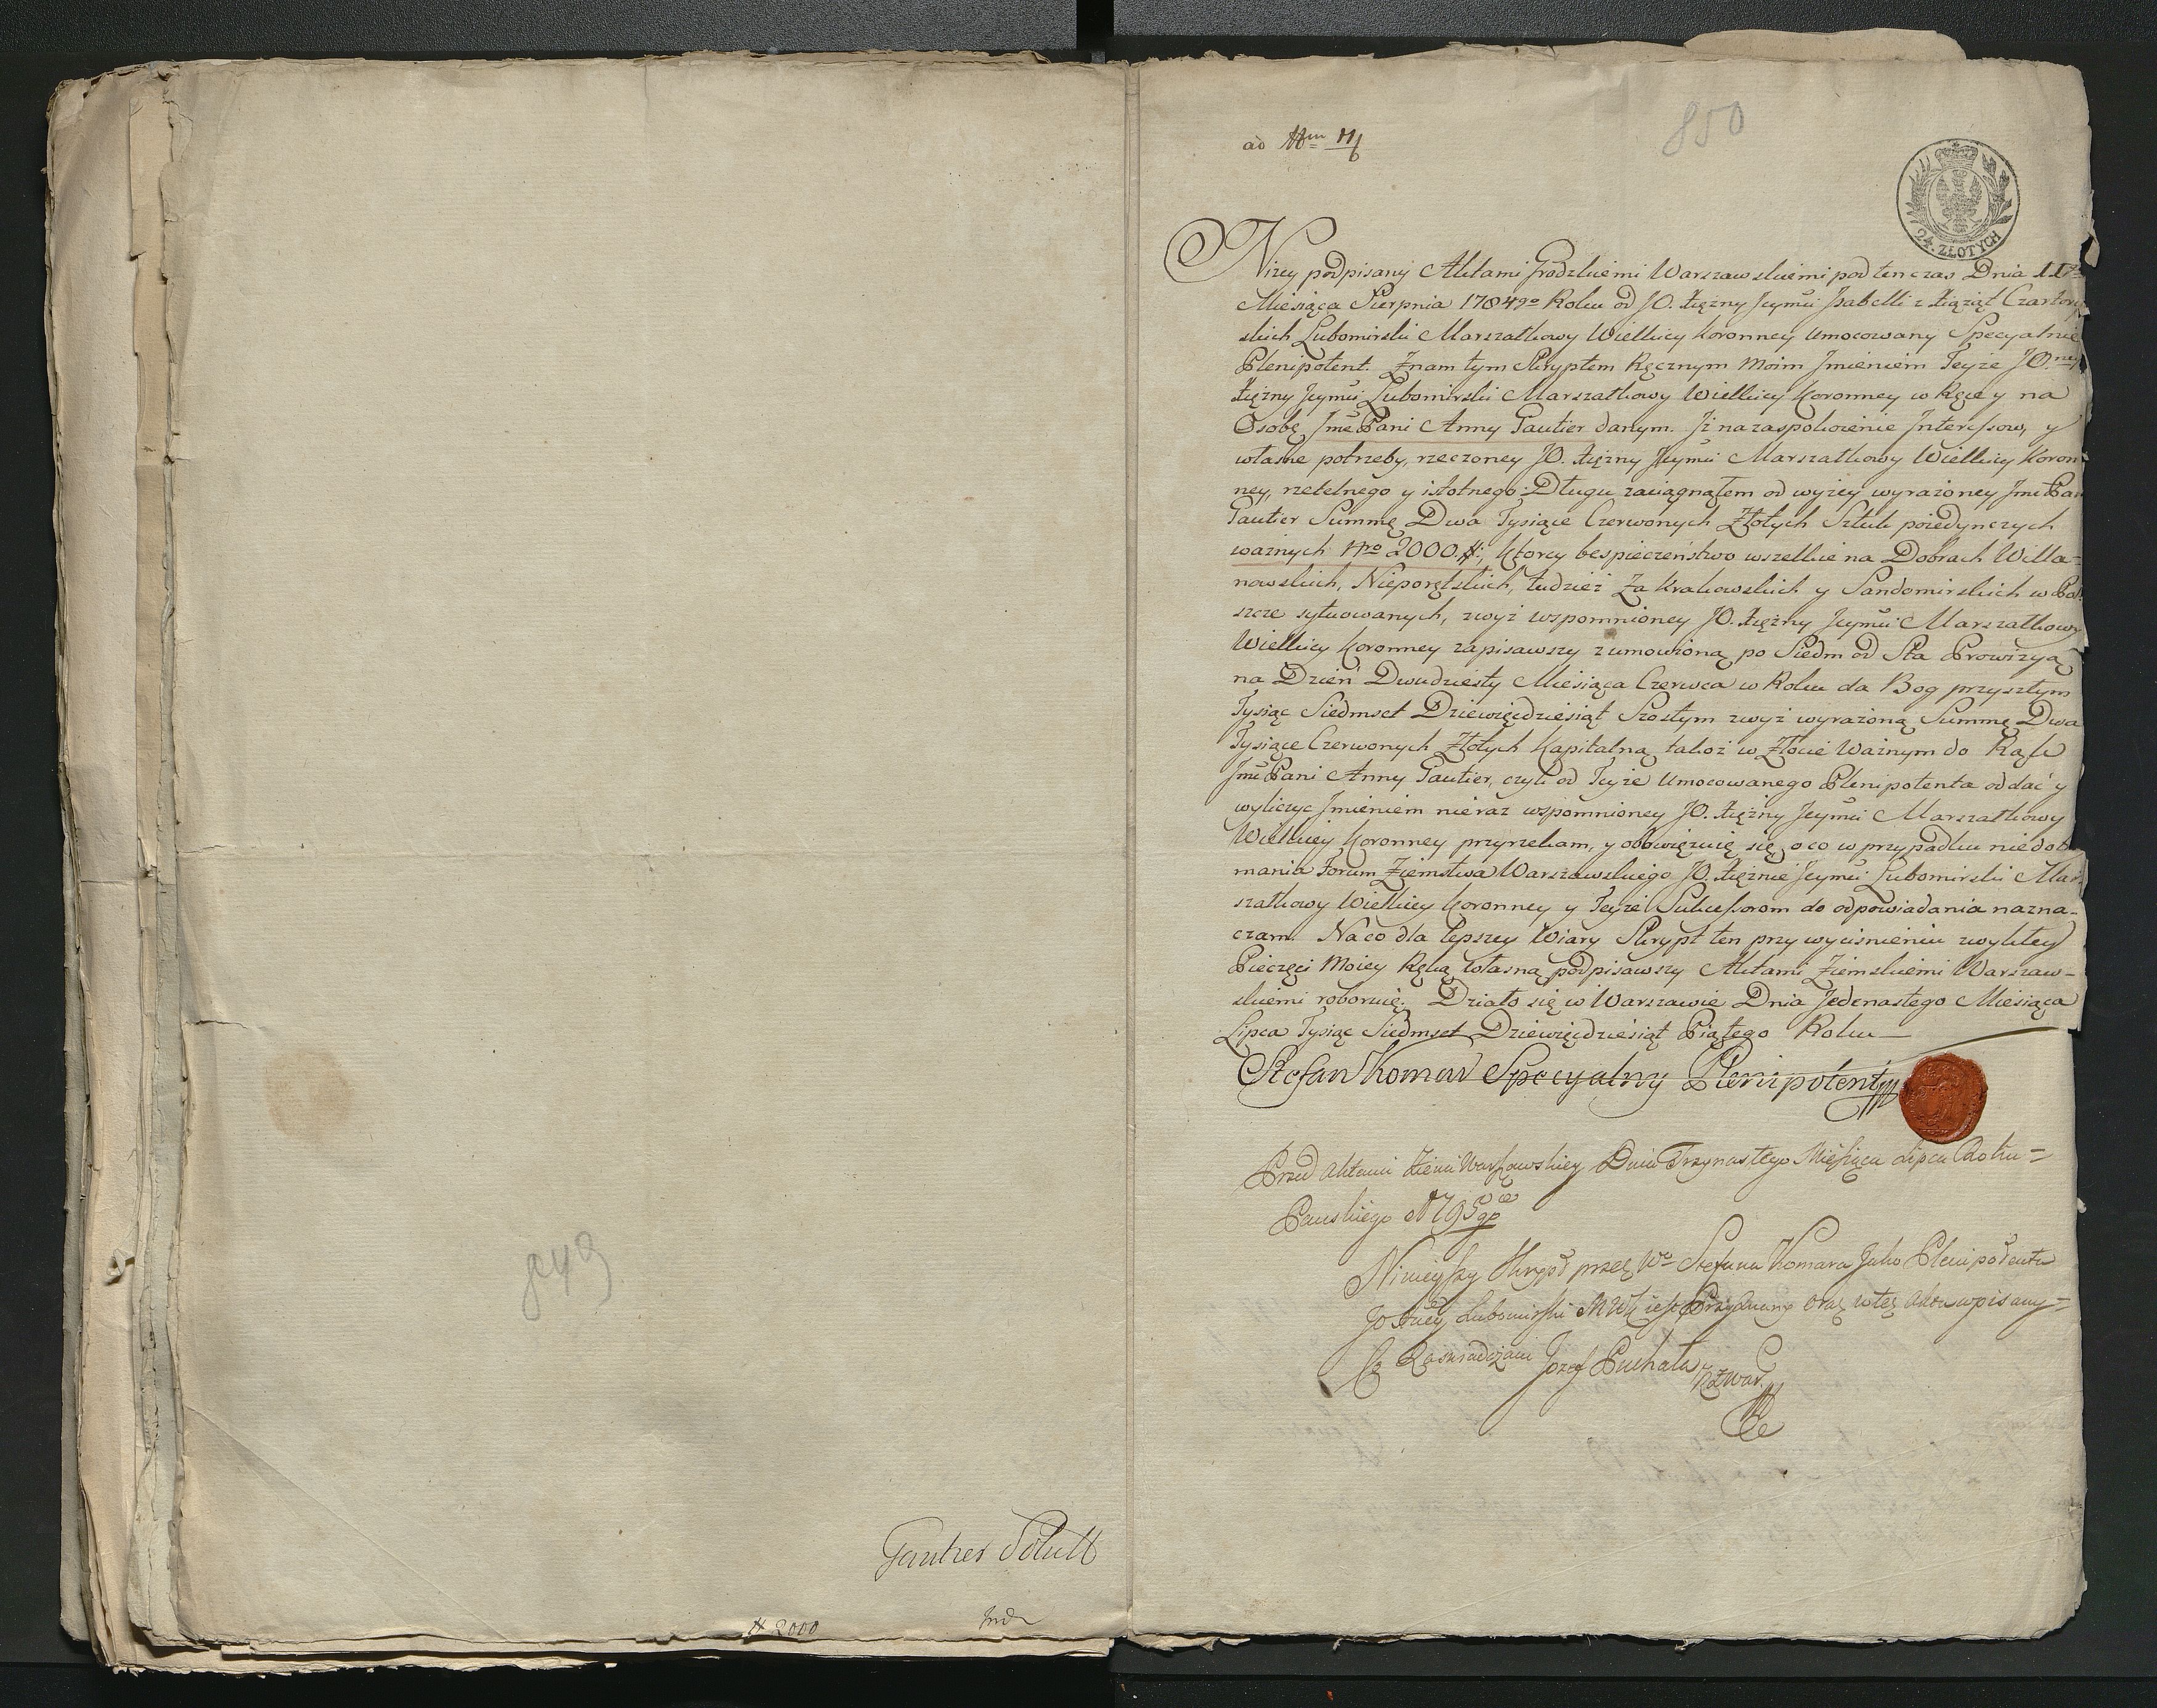 849
Gautier Solutt
# 2000
850
ad
24. ZŁOTYCH
Niżey podpisany Aktami Grodzkiemi Warszawskiemi pod ten czas Dnia 11
Miesiąca Sierpnia 1784go Roku od JO. Xiężny Jeymći Izabelli z Xiążąt Czartory
skich Lubomirski Marszałkowy Wielkiey Koronney Umocowany Specyalnie
Plenipotent. Znam tym Skryptem Ręcznym Moim Imieniem Teyże JO.ney
Xiężny Jeymći Lubomirski Marszałkowy Wielkiey Koronney w Ręce y na
Osobę Jmć Pani Anny Gautier danym. Iż na zaspokoienie Interessow, y
własne potrzeby, rzeczoney JO. Xiężny Jeymći Marszałkowy Wielkiey Koron
ney, rzetelnego y istotnego Długu zaciągnąłem od wyżey wyrażoney Jmć Pani
Gautier Summę Dwa Tysiące Czerwonych Złotych Sztuk poiedynczych
ważnych Nro 2000 #; ktorey bespieczeństwo wszelkie na Dobrach Willa-
nowskich, Nieporętskich, tudzież Za Krakowskich y Sandomirskich w Pol
szcze sytuowanych, zwyż wspomnioney JO. Xiężny Jeymći Marszałkowy
Wielkiey Koronney zapisawszy z umowioną po Siedm od Sta Prowizyą
na Dzień Dwudziesty Miesiąca Czerwca w Roku da Bog przyszłym
Tysiąc Siedmset Dziewięćdziesiąt Szostym zwyż wyrażoną Summę Dwa
Tysiące Czerwonych Złotych Kapitalną takoż w Złocie Ważnym do Rąk
Jmć Pani Anny Gautier, czyli od Teyże Umocowanego Plenipotenta oddać y
wyliczyć Imieniem nieraz wspomnioney JO. Xiężny Jeymći Marszałkowy
Wielkiey Koronney przyrzekam, y obowięzuię się, o co w przypadku niedotrzy
mania Forum Ziemstwa Warszawskiego JO. Xiężnie Jeymći Lubomirski Mar
szałkowy Wielkiey Koronney y Teyże Sukcessorom do odpowiadania nazna-
czam. Na co dla lepszey Wiary Skrypt ten przy wyciśnieniu zwykłey
Pieczęci Moiey Ręką własną podpisawszy Aktami Ziemskiemi Warszaw-
skiemi roboruię. Działo się w Warszawie Dnia Jedenastego Miesiąca
Lipca Tysiąc Siedmset Dziewięćdziesiąt Piątego Roku
Stefan Komar Specyalny Plenipotent
Przed Aktami Ziemi Warszawskiey Dnia Trzynastego Miesiąca Lipca Roku
Pańskiego 1795go
Ninieyszy Skrypt przez Wo Stefana Komara Jako Plenipotenta
JO Xney Lubomirski MWK iest Przyznany oraz w też Akta wpisany
Zaświadczam Jozef Puchała